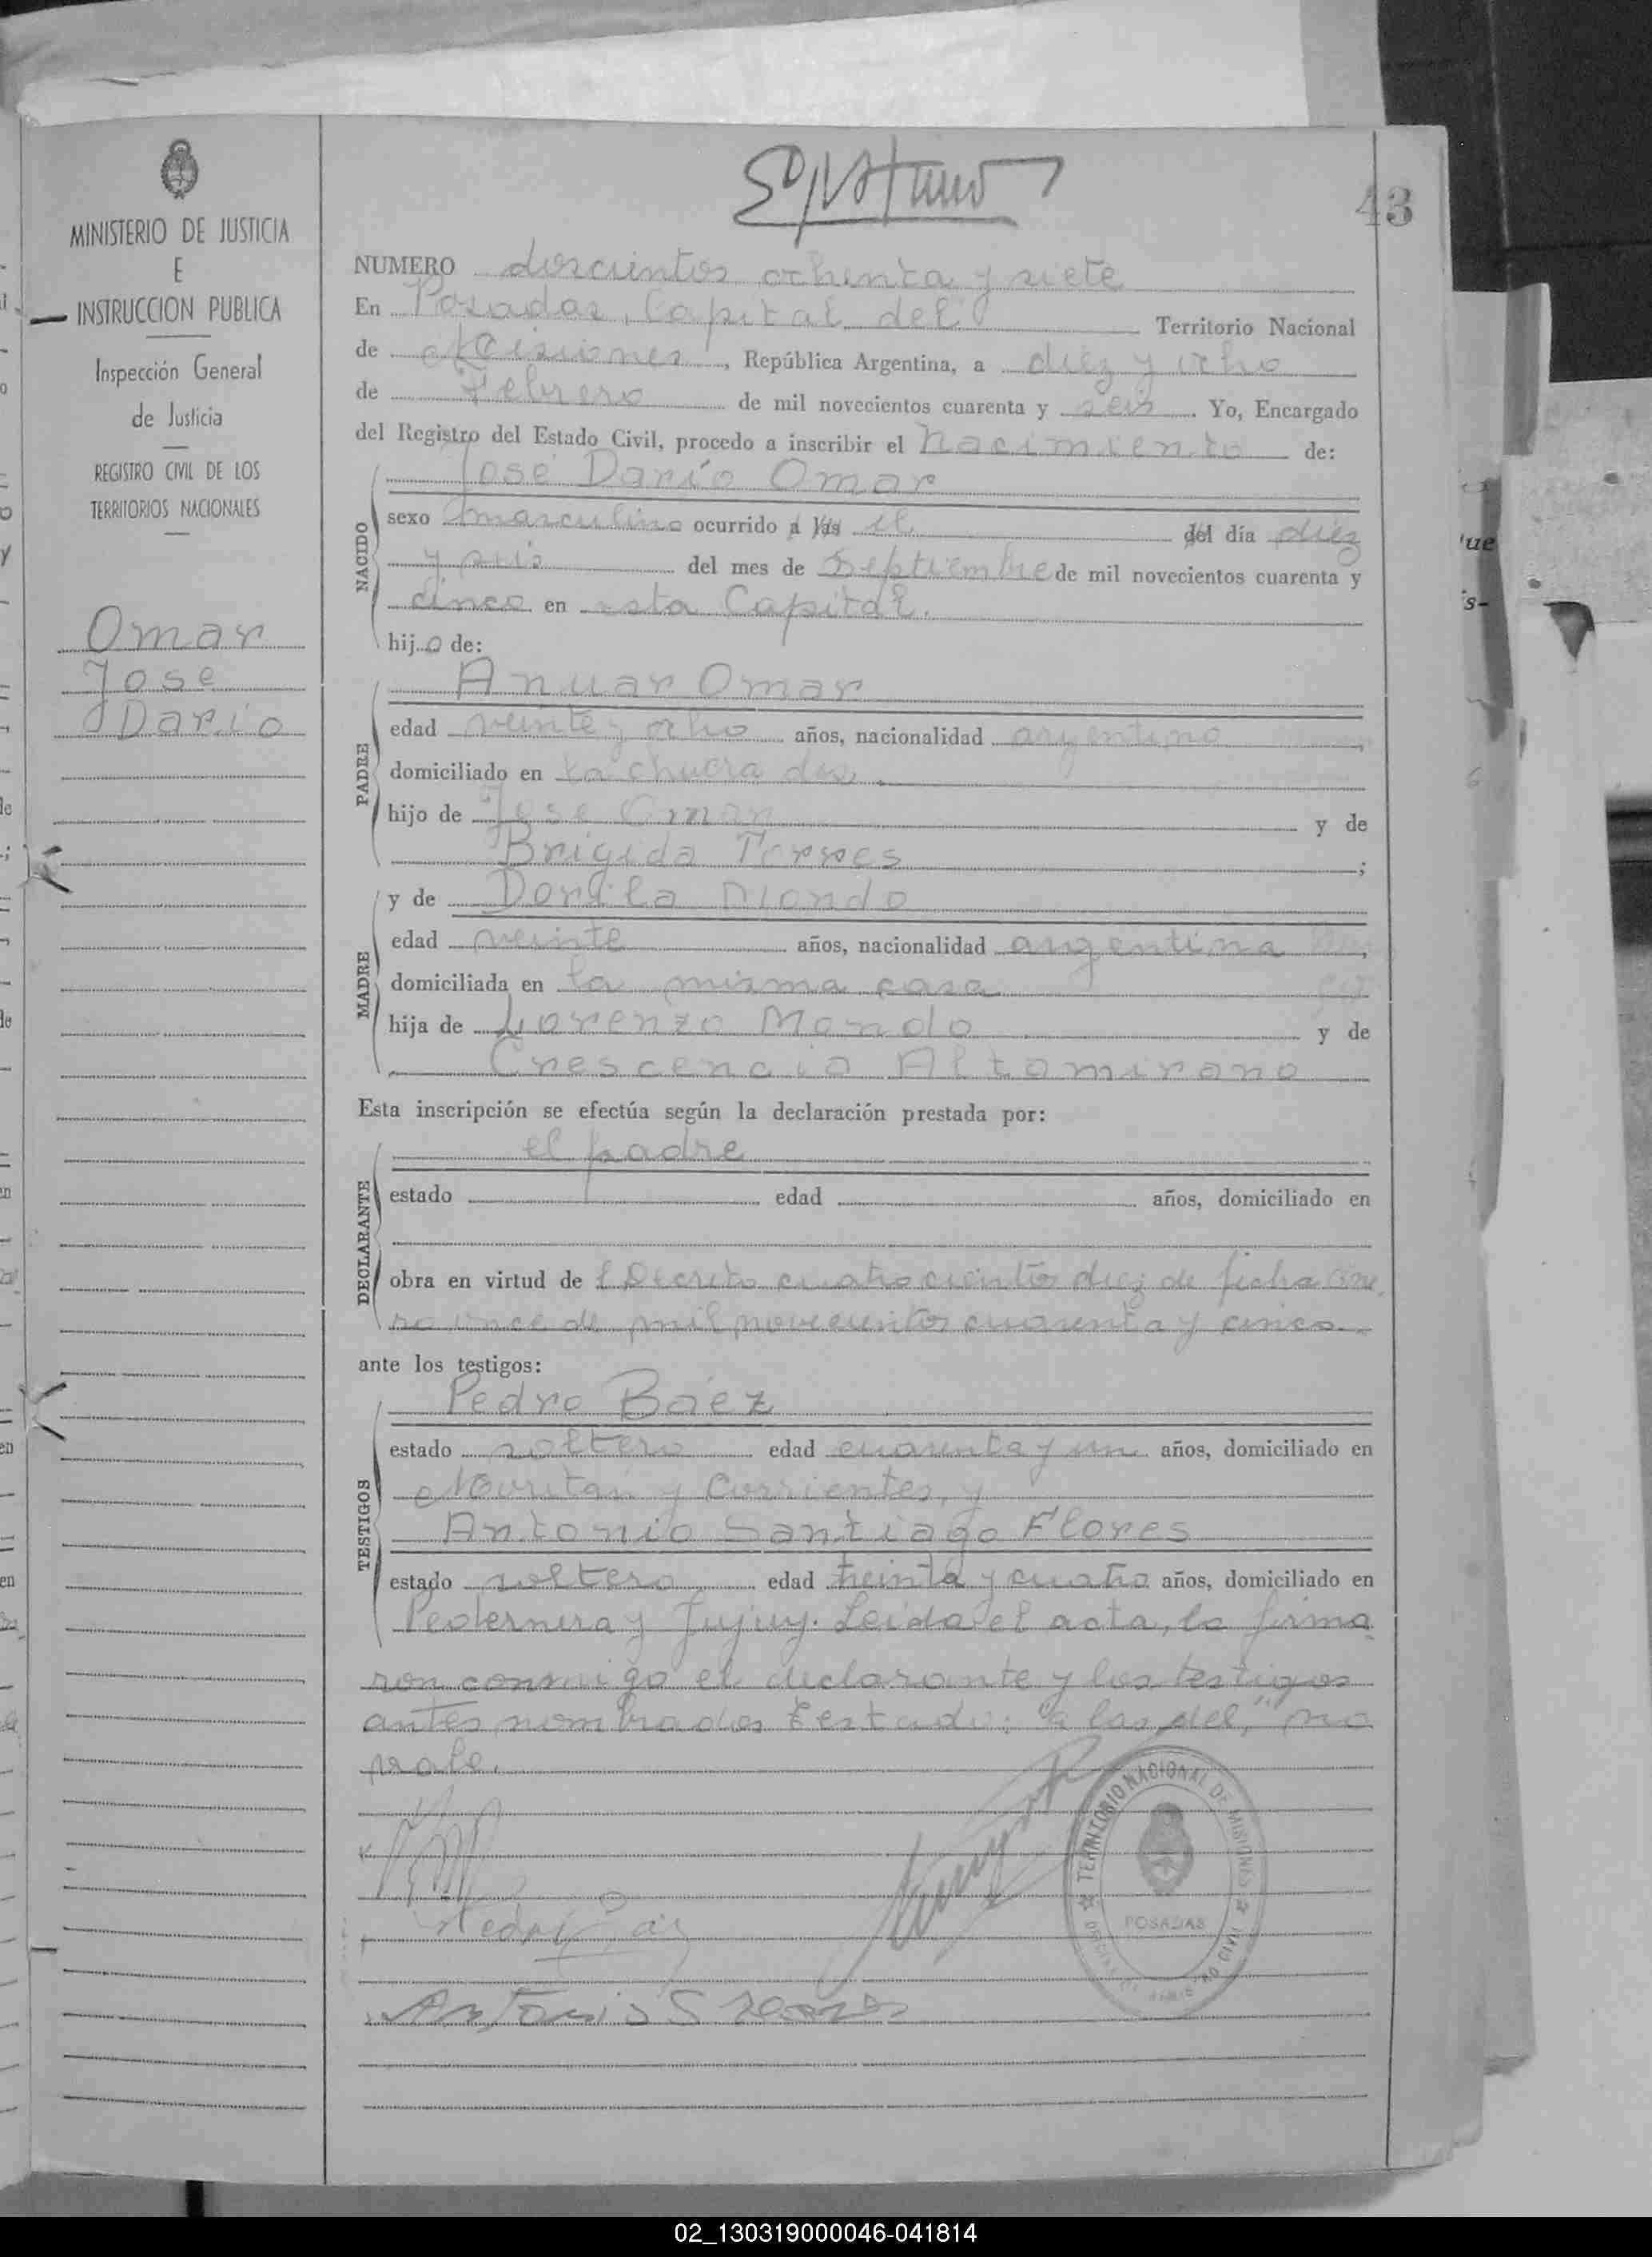 43
MINISTERIO DE JUSTICIA
E
INSTRUCCION PUBLICA
Inspección General
de Justicia
REGISTRO CIVIL DE LOS
TERRITORIOS NACIONALES
Omar
Jose
Dario
NUMERO doscientos ochenta y siete
En Posadas, Capital del Territorio Nacional
de Misiones, República Argentina, a diez y ocho
de Febrero de mil novecientos cuarenta y seis. Yo, Encargado
del Registro del Estado Civil, procedo a inscribir el Nacimiento de:
José Darío Omar
NACIDO
sexo masculino ocurrido a las el del día diez
y seis del mes de Septiembre de mil novecientos cuarenta y
cinco en esta Capital.
hijo de:
Anuar Omar
PADRE
edad veinte y ocho años, nacionalidad argentino,
domiciliado en la chacra dos.
hijo de Jose Omar y de
Brigida Torres;
y de Dorila Mondo
MADRE
edad veinte años, nacionalidad argentina,
domiciliada en la misma casa
hija de Lorenzo Mondo y de
Crescencia Altamirano
Esta inscripción se efectúa según la declaración prestada por:
el padre
DECLARANTE
estado edad años, domiciliado en
obra en virtud del Decreto cuatrocientos diez de fecha Ene
ro once de mil novecientos cuarenta y cinco.
ante los testigos:
Pedro Báez
TESTIGOS
estado soltero edad cuarenta y un años, domiciliado en
y Corrientes, y
Antonio Santiago Flores
estado soltero edad treinta y cuatro años, domiciliado en
Pedernera y Jujuy. Leida el acta, la firma
ron conmigo el declarante y los testigos
antes nombrados. Testado: "a las, del," no
vale.
TERRITORIO NACIONAL DE MISIONES
POSADAS
Antonio S Flores
'ue
's-
02_130319000046-041814